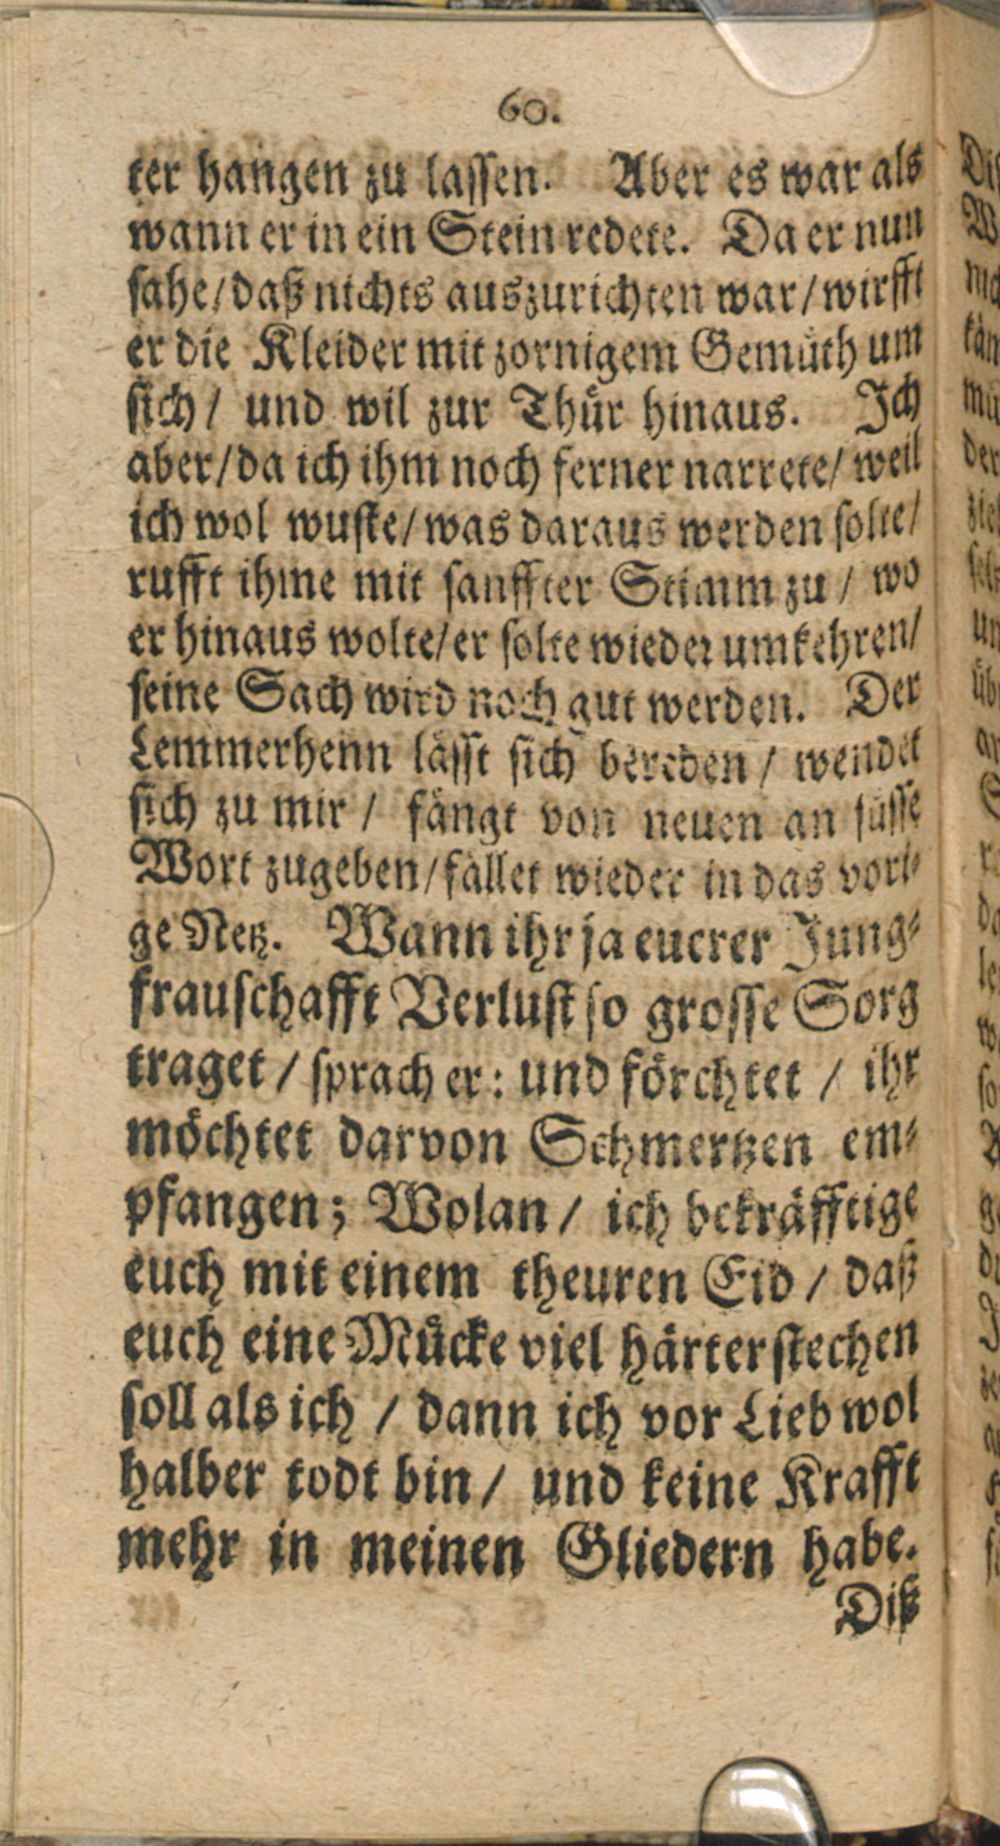 60.
ter hangen zu lassen. Aber es war als
wann er in ein Stein redete. Da er nun
sahe/ daß nichts auszurichten war/ wirfft
er die Kleider mit zornigem Gemüth um
sich/ und wil zur Thür hinaus. Ich
aber/ da ich ihm noch ferner narrete/ weil
ich wol wuste/ was daraus werden solte/
rufft ihme mit sanffter Stimm zu/ wo
er hinaus wolte/ er solte wieder umkehren/
seine Sach wird noch gut werden. Der
Lemmerhenn lässt sich bereden/ wendet
sich zu mir/ fängt von neuen an süsse
Wort zugeben/ fället wieder in das vori-
ge Netz. Wann ihr ja eucrer Jung-
frauschafft Verlust so grosse Sorg
traget/ sprach er: und förchtet/ ihr
möchtet darvon Schmertzen em-
pfangen; Wolan/ ich bekräfftige
euch mit einem theuren Eid/ daß
euch eine Mücke viel härter stechen
soll als ich/ dann ich vor Lieb wol
halber todt bin/ und keine Krafft
mehr in meinen Gliedern habe.
Diß